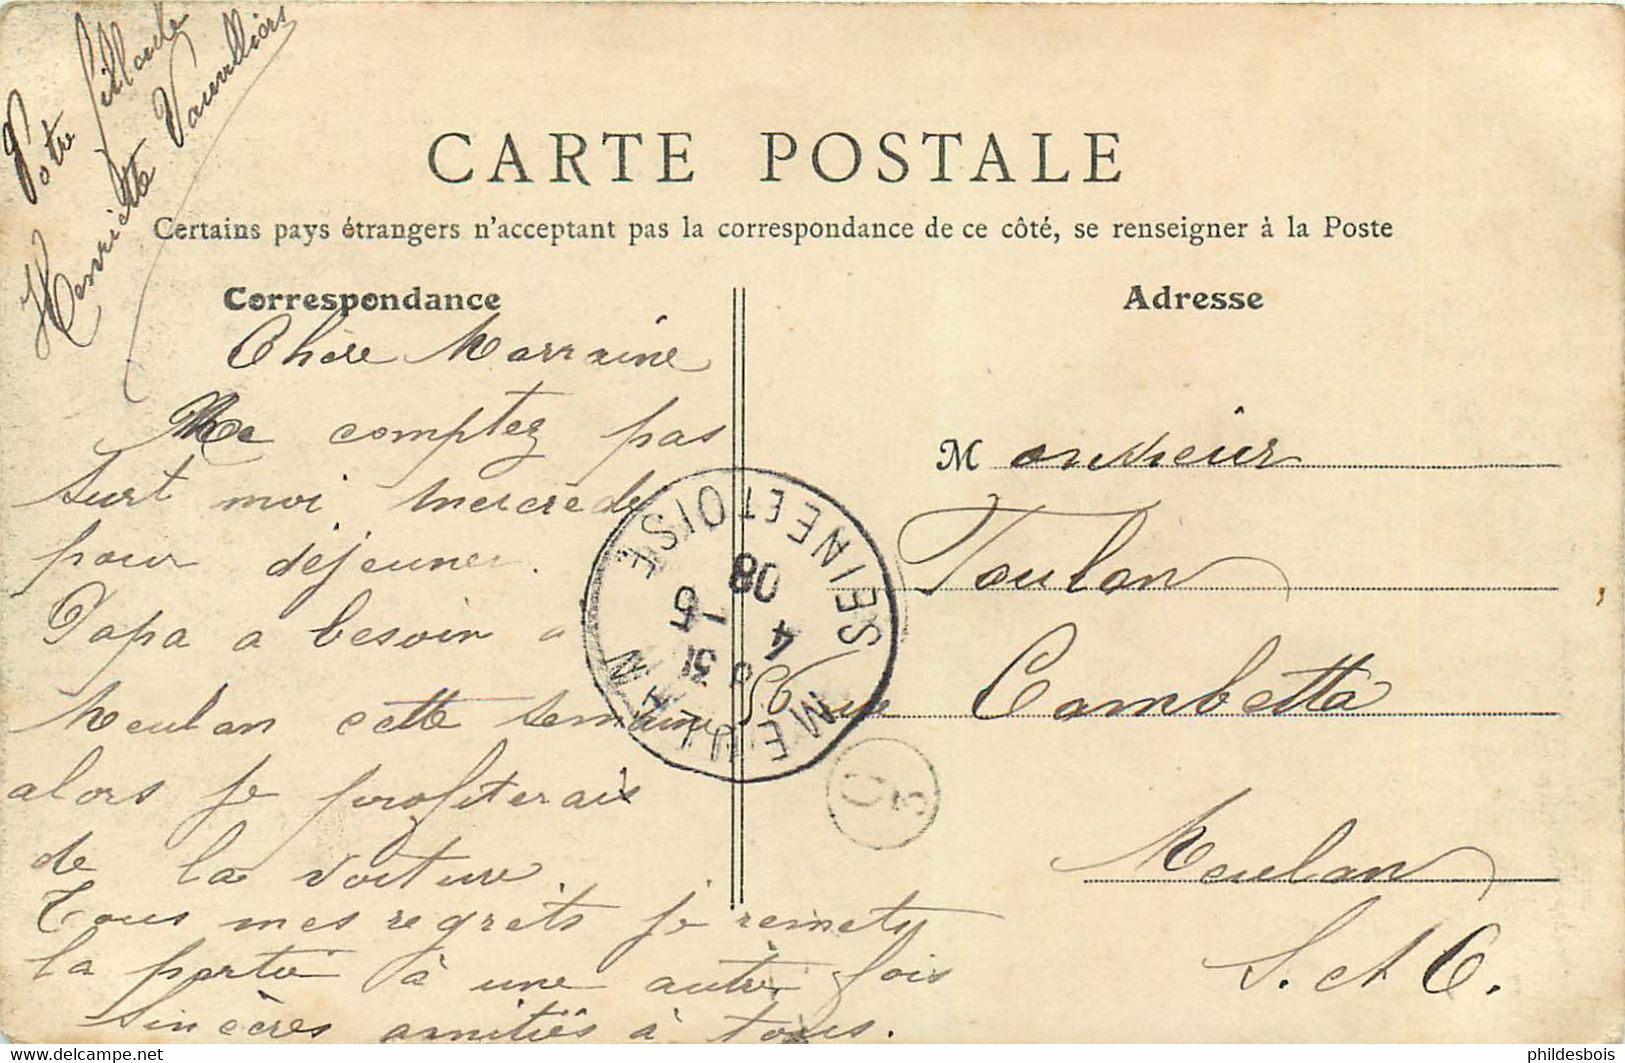 Votre filleule
Henriette Vauvilliers
CARTE POSTALE
Certains pays étrangers n'acceptant pas la correspondance de ce côté, se renseigner à la Poste
Correspondance
Chère Marraine
Ne comptez pas
surt moi mercredi
pour déjeuner.
Papa a besoin a
Meulan cette semaine
alors je profiterais
de la voiture
Tous mes regrets je remets
la partie à une autre fois
Sincères amitiés à tous.
Adresse
Monsieur
Toulon
rue Gambetta
Meulan
S. et O.
MEULAN
SEINE ET OISE
4 -5
08
C
3
delcampe.net
phildesbois